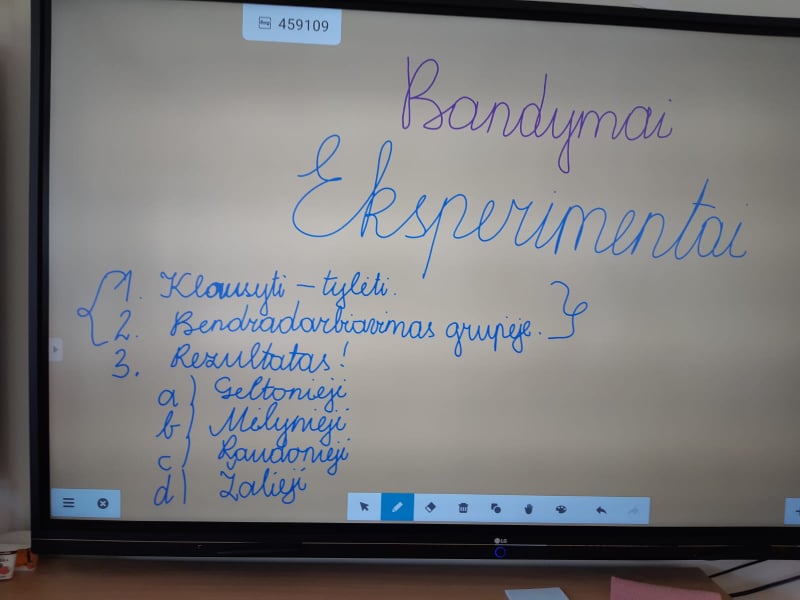 459109
Bandymai
Eksperimentai
1. Klausyti – tylėti.
2. Bendradarbiavimas grupėje.
3. Rezultatas!
a) Geltonieji
b) Mėlynieji
c) Raudonieji
d) Žalieji
LG